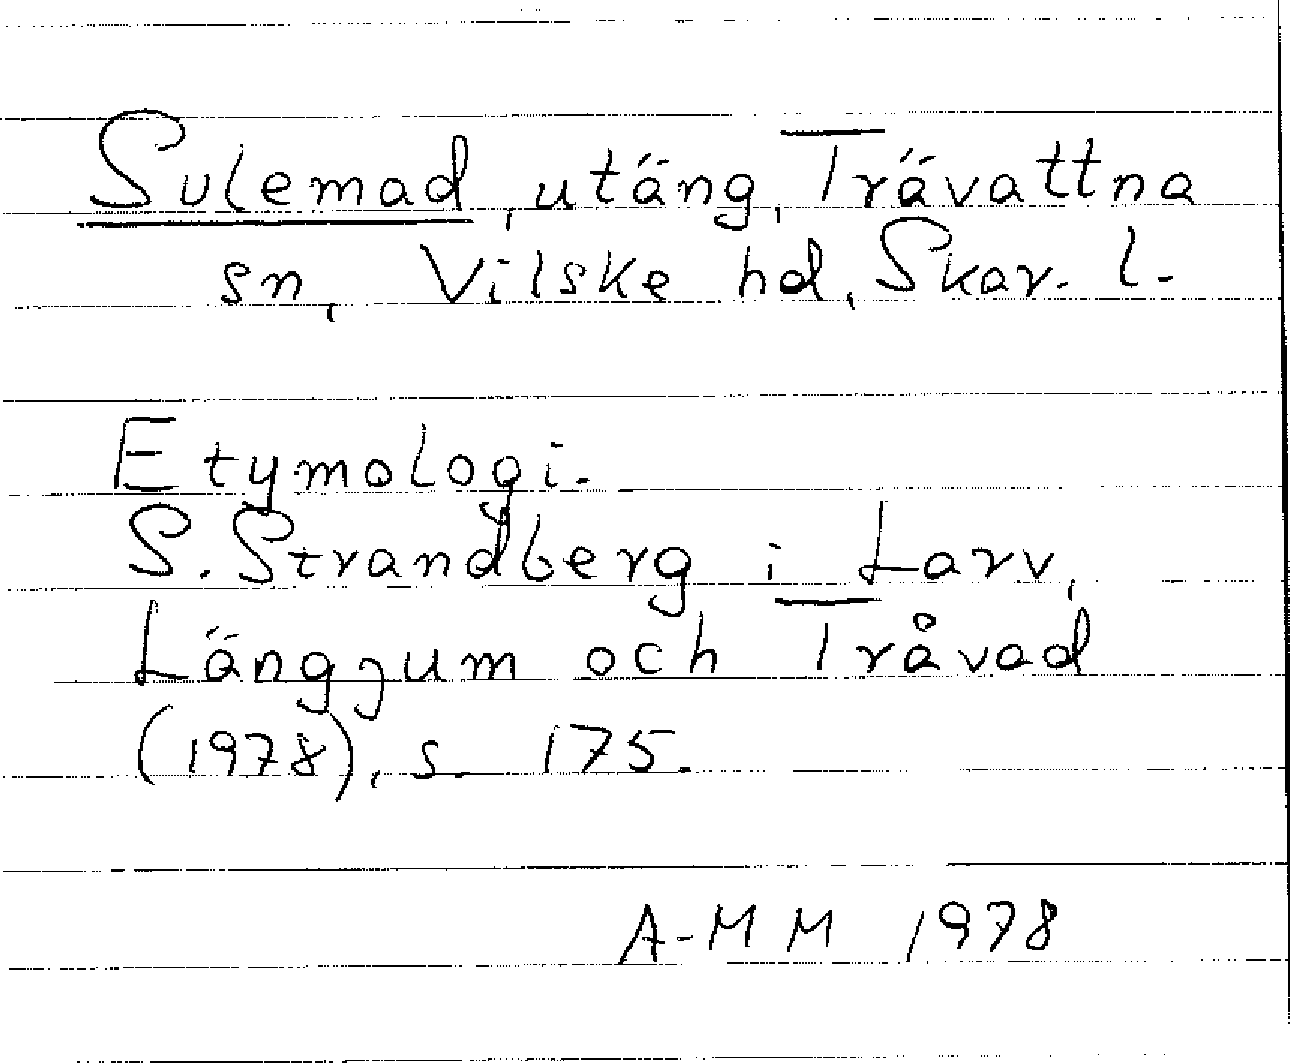 Sulemad, utäng, Trävattna
sn, Vilske hd, Skar. l.
Etymologi.
S. Strandberg i Larv,
Längjum och Tråvad
(1978), s. 175.
A-MM 1978